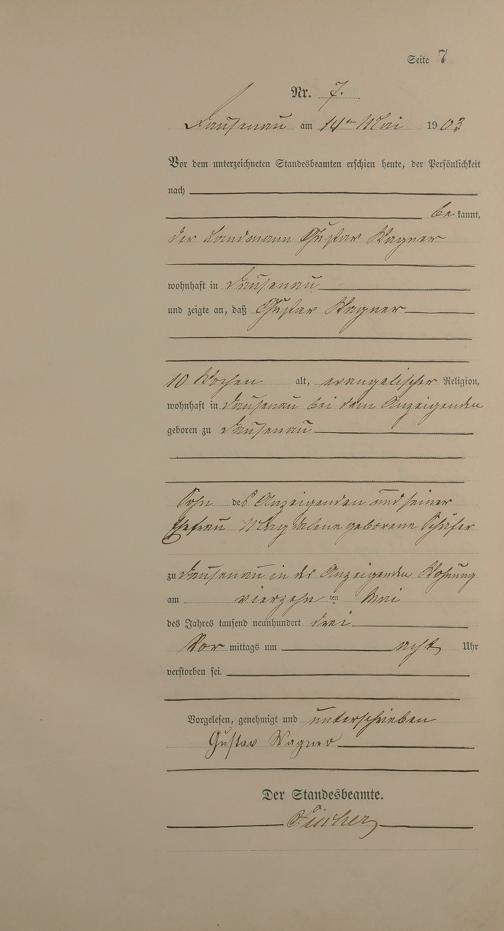 Seite 7
Nr. 7.
Dausenau am 14ten Mai 1903
Vor dem unterzeichneten Standesbeamten erschien heute, der Persönlichkeit
nach
be kannt,
der Landmann Gustav Wagner
wohnhaft in Dausenau
und zeigte an, daß Gustav Wagner
10 Wochen alt, evangelischer Religion,
wohnhaft in Dausenau bei dem Anzeigenden
geboren zu Dausenau
Sohn des Anzeigenden und seiner
Ehefrau Magdalene geborene Schäfer
zu Dausenau in des Anzeigenden Wohnung
am vierzehnten Mai
des Jahres tausend neunhundert drei
Vor mittags um acht Uhr
verstorben sei.
Vorgelesen, genehmigt und unterschrieben
Gustav Wagner
Der Standesbeamte.